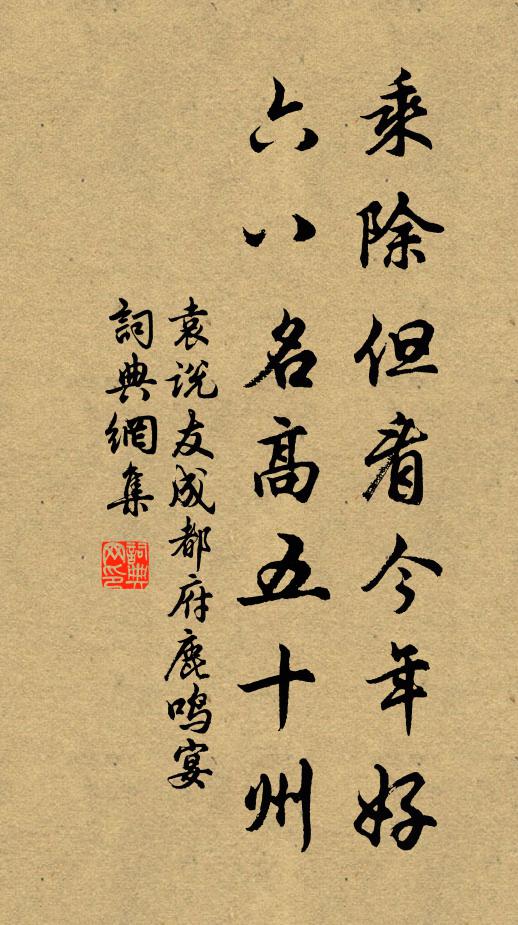 乘除但看今年好
六八名高五十州
袁说友成都府鹿鸣宴
詞典網集
詞典
网印